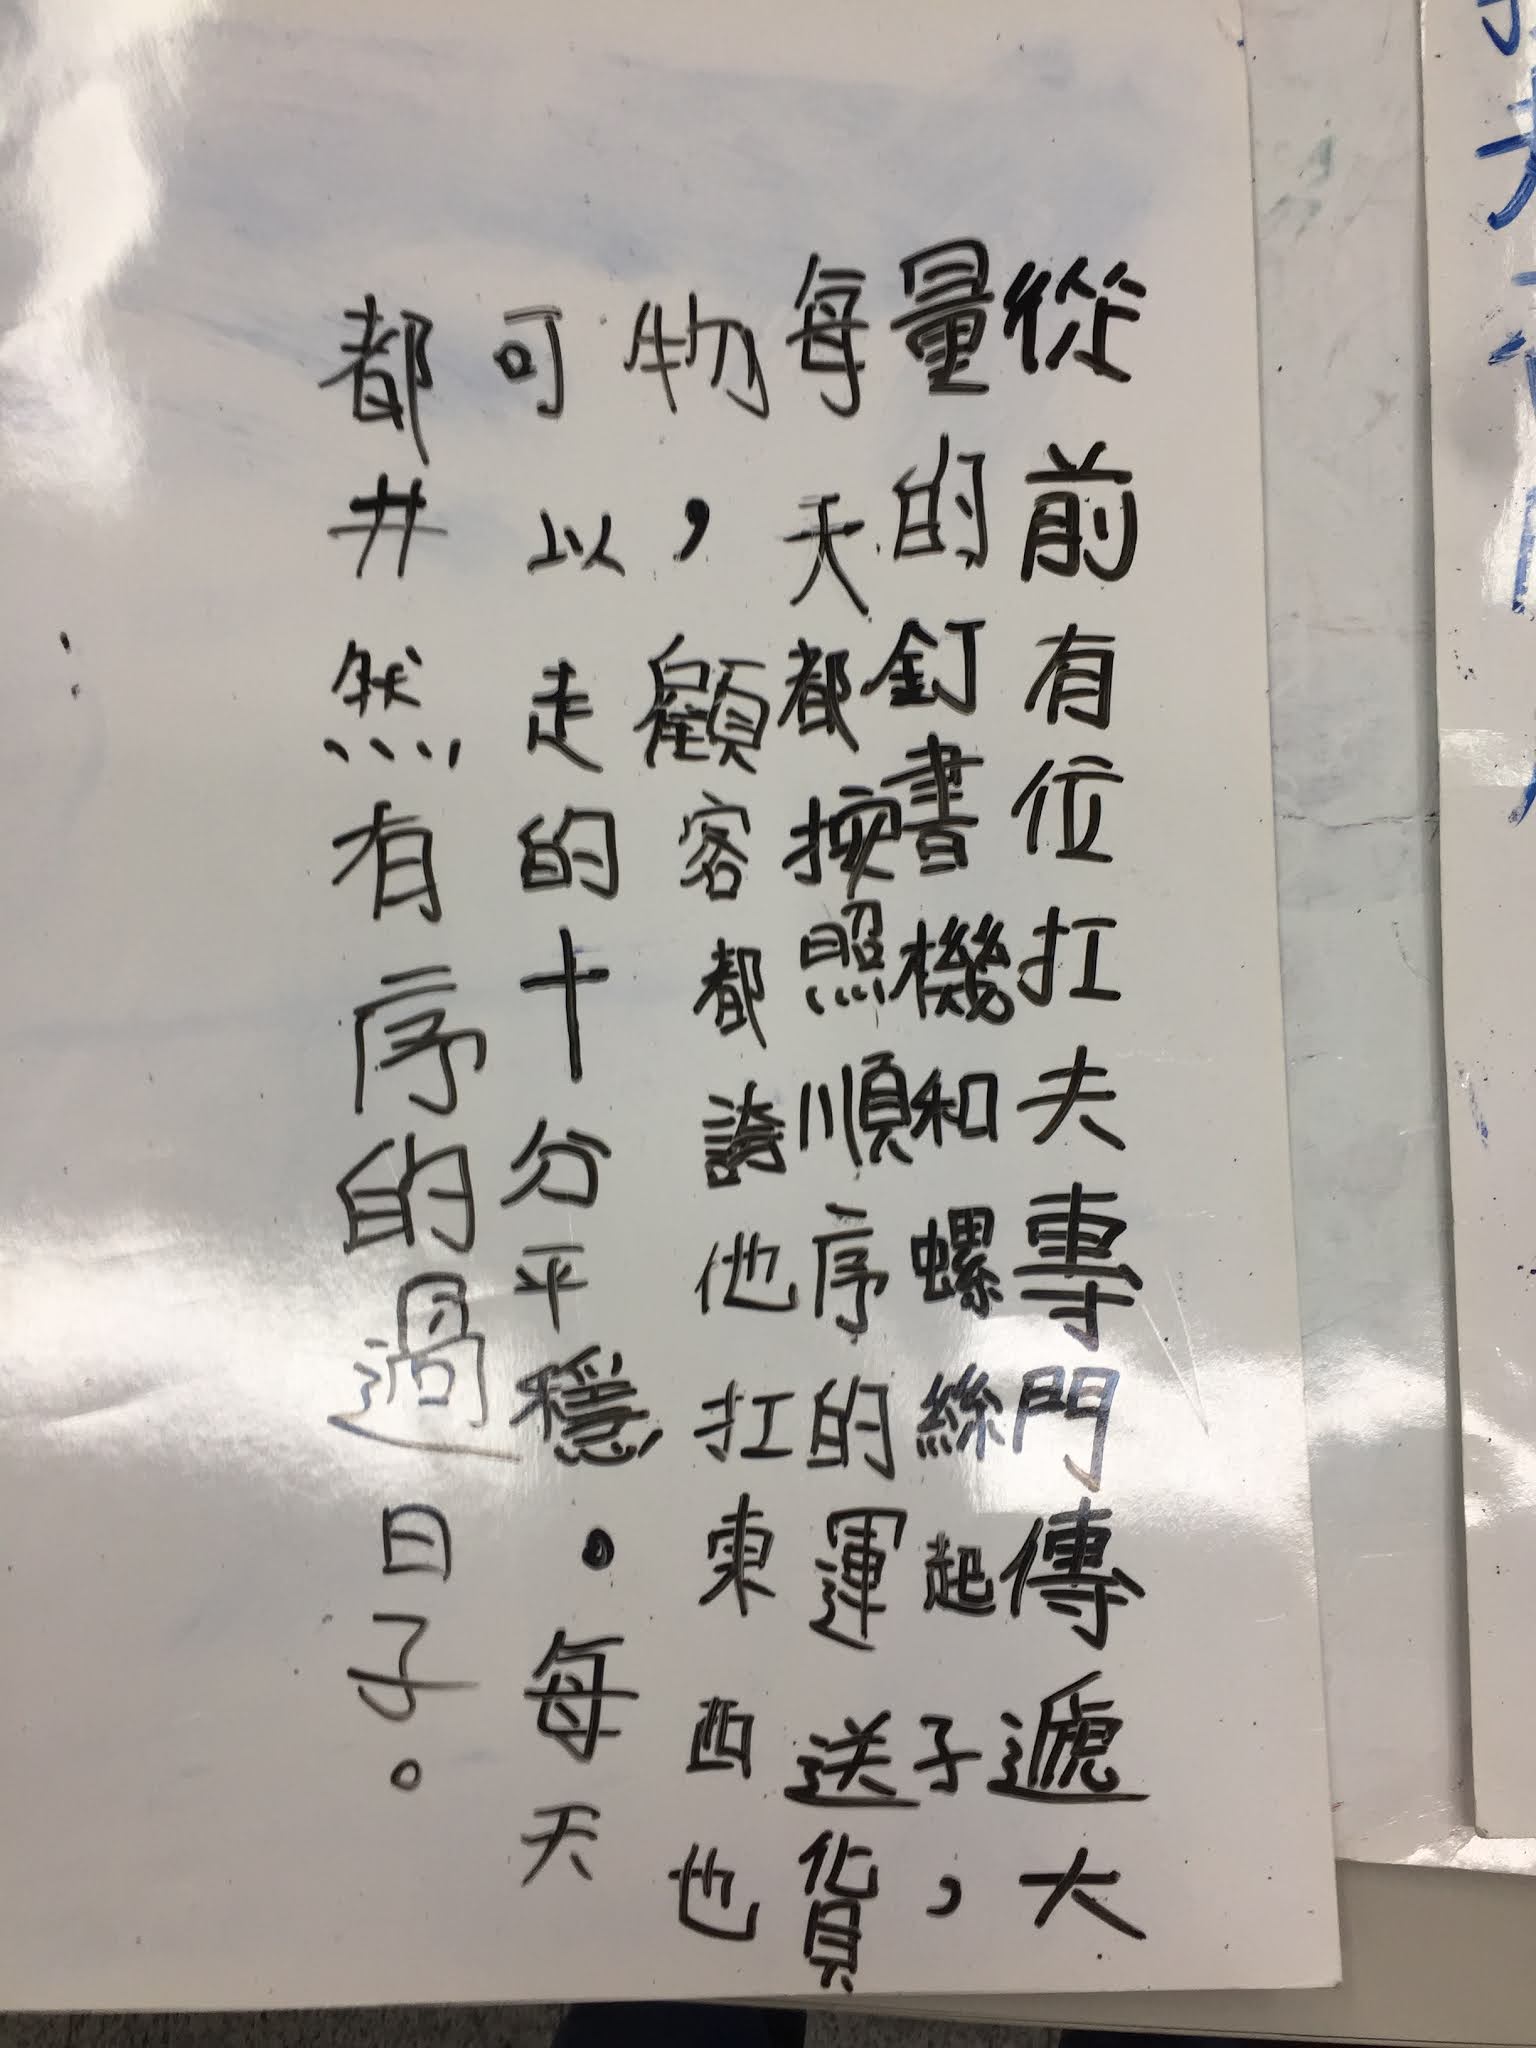 從前有位扛夫專門傳遞大
量的釘書機和螺絲起子，
每天都按照順序的運送貨
物，顧客都誇他扛東西也
可以走的十分平穩。每天
都井然有序的過日子。